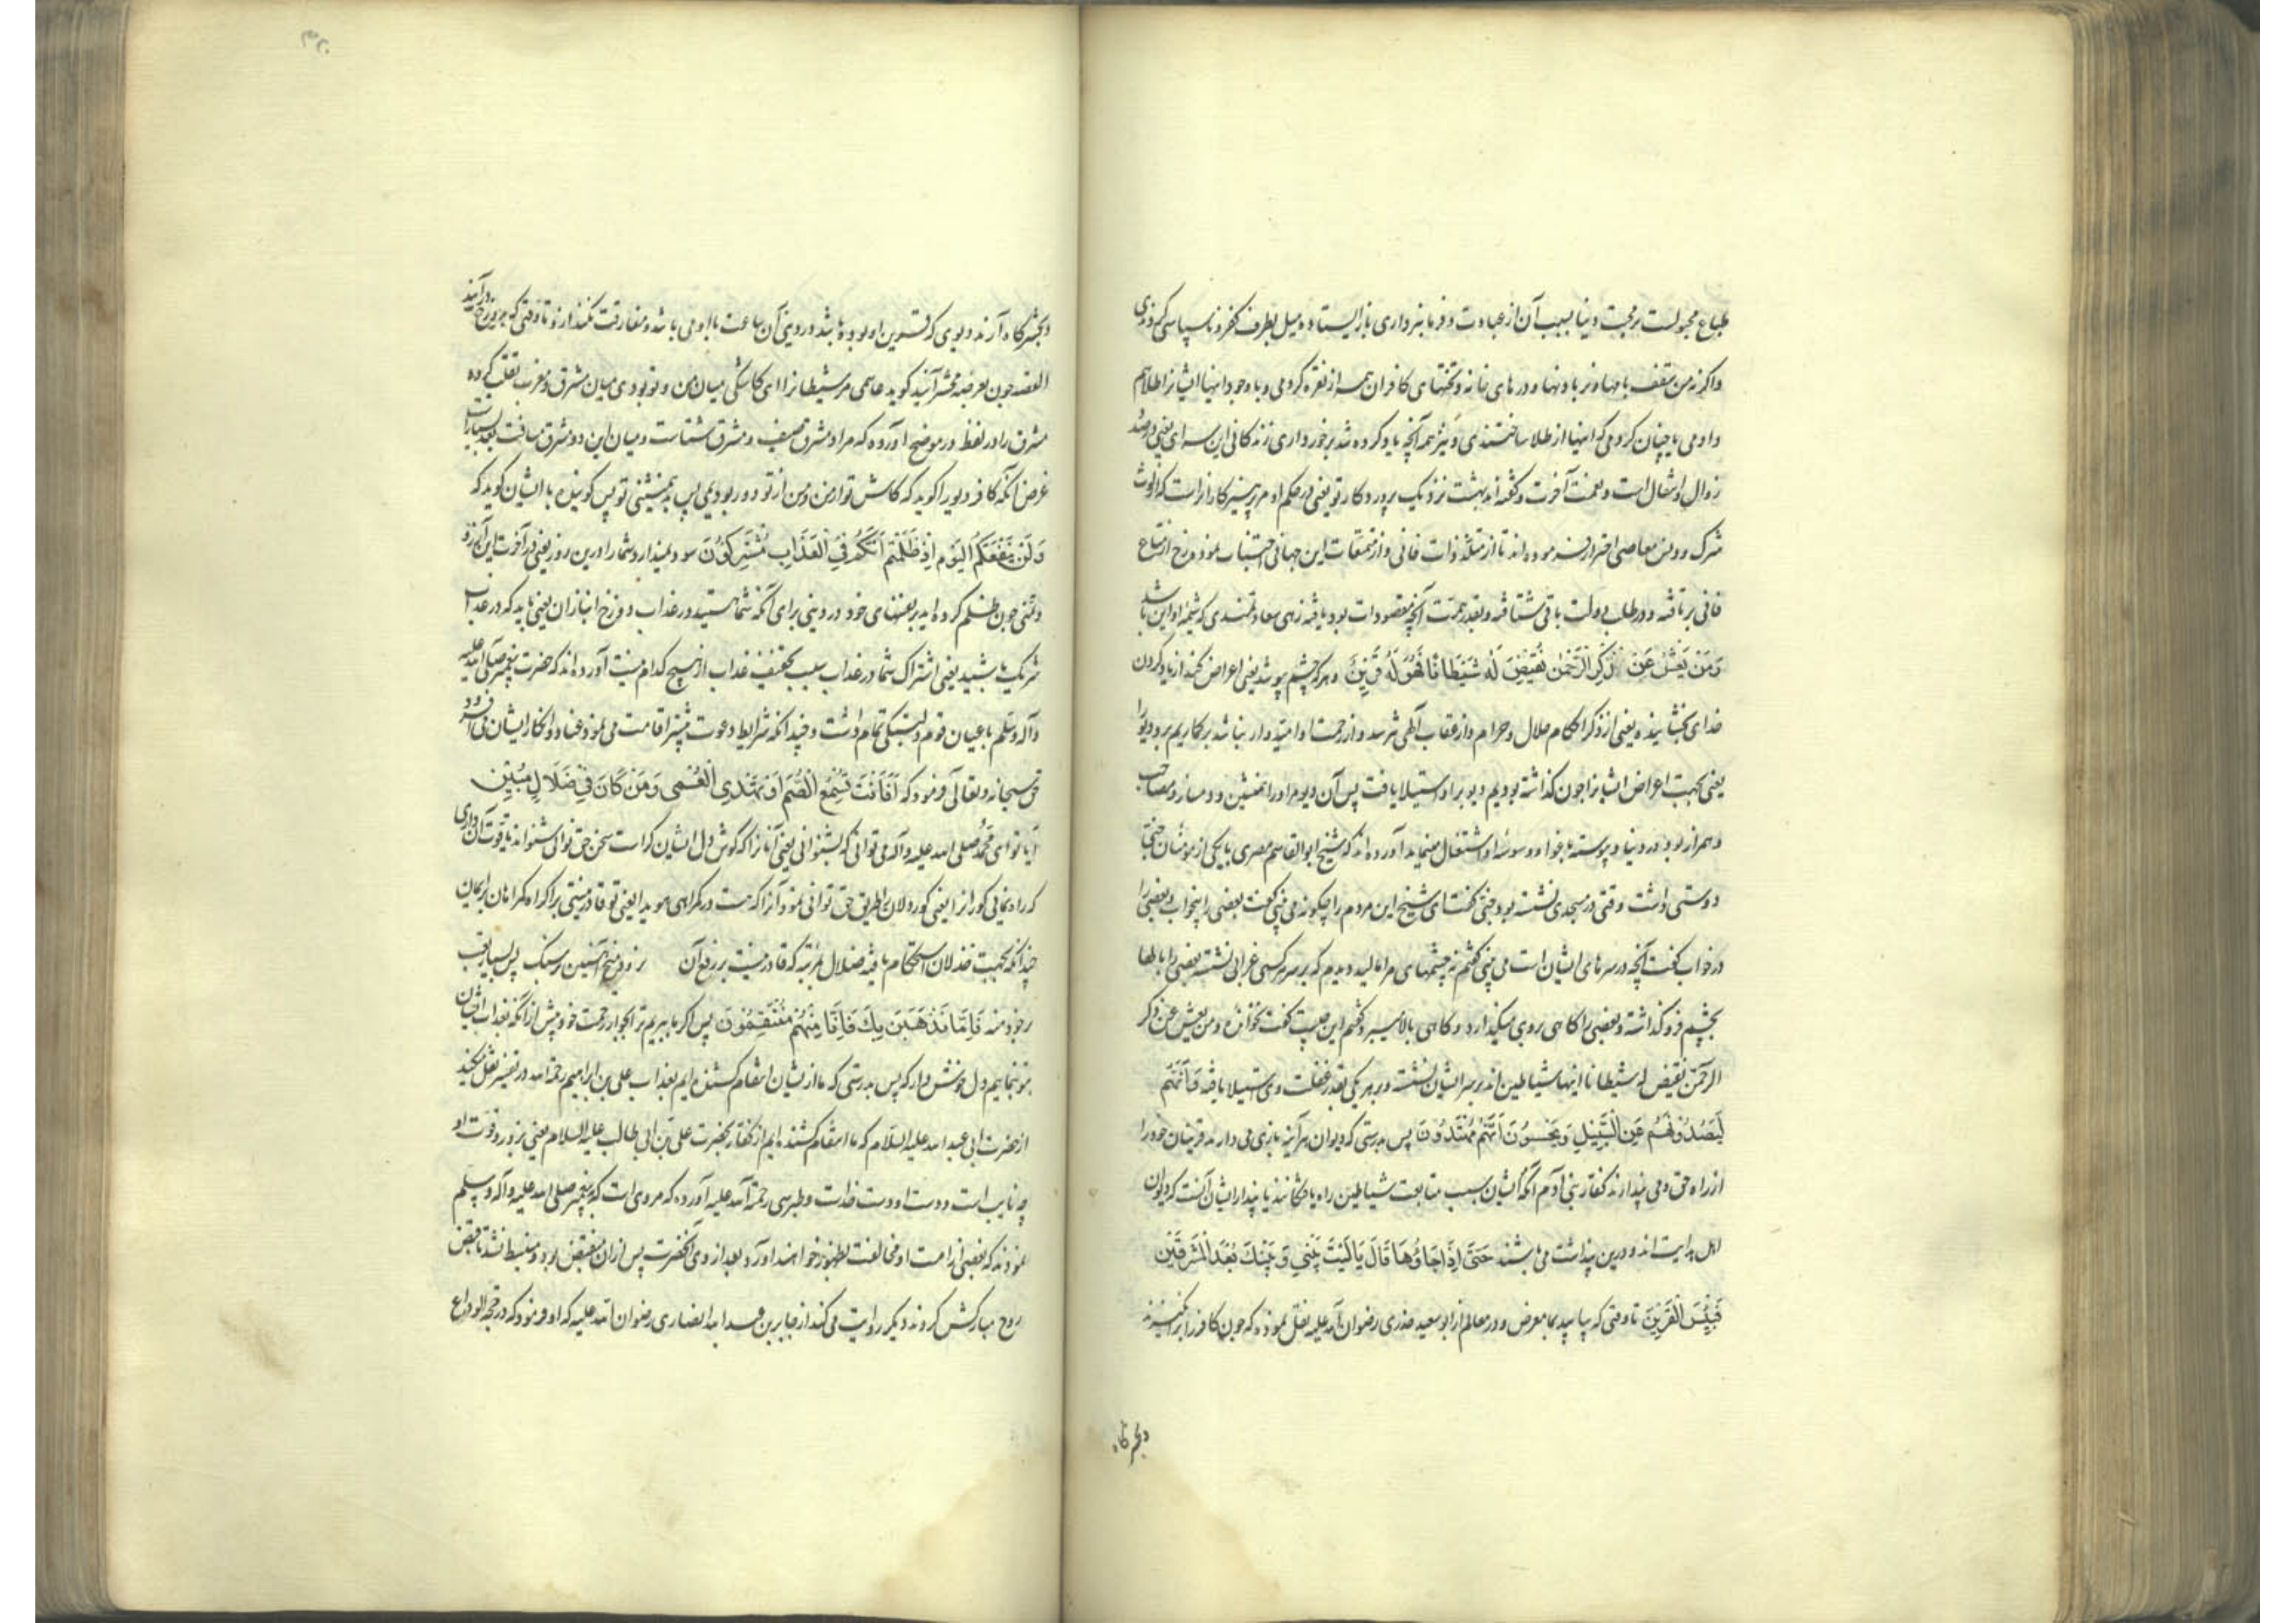 طباع مجبولست بر محبت دنیا بسبب آن از عبادت و فرمانبرداری باز ایستاده میل بطرف کفر و ناسپاسی کردندی
واگرنه من سقف بامها و نردبانها و درهای خانه و تختهای کافران همه از نقره کردمی و باوجود اینها ایشانرا طلا هم
دادمی یا چنان کردمی که اینها از طلا ساختندی و نیز همه آنچه یاد کرده شد برخورداری زندگانی این سرای یعنی در صدد
زوال و انتقال است و نعمت آخرت و گفته اند بهشت نزدیک پروردگار تو یعنی در حکم او مر پرهیزکارانراست که از لوث
شرک و دنس معاصی احتراز فرموده اند تا از متلذذات فانی و از تمتعات این جهانی اجتناب نموده رخ از متاع
فانی برتافته و در طلب دولت باقی شتافته و بقدر همت آنچه مقصود است بود یافته زهی سعادتمندی که شیمه او این باشد
وَمَن يَعْشُ عَن ذِكْرِ الرَّحْمٰنِ نُقَيِّضْ لَهُ شَيْطَانًا فَهُوَ لَهُ قَرِينٌ و هرکه چشم پوشد یعنی اعراض کند از یاد کردن
خدای بخشاینده یعنی از ذکر احکام حلال و حرام و از عقاب الهی نترسد و از رحمت او امیدوار نباشد برگماریم برو دیو را
یعنی بجهت اعراض ایشانرا چون گذاشته بودیم دیو بر او استیلا یافت پس آن دیو مر او را همنشین و دمساز و مصاحب
و همراز بود در دنیا و پیوسته باغوا و وسوسه او اشتغال مینماید آورده اند که شیخ ابوالقاسم مصری با یکی از مومنان جنی
دوستی داشت وقتی در مسجدی نشسته بود جنی گفت ای شیخ این مردم را چگونه می بینی گفت بعضی را بخواب و بعضی را
در خواب گفت آنچه در سرهای ایشان است می بینی گفتم نه چشمهای مرا مالید دیدم که بر سر هر کسی غرابی نشسته بعضی را بالها
بچشم فرو گذاشته و بعضی را گاهی بروی میگذارد و گاهی بالا میبرد گفتم این چیست گفت نخوانده و من یعش عن ذکر
الرحمن نقیض له شیطانا اینها شیاطین اند بر سر ایشان نشسته و بر هر یکی بقدر غفلت وی استیلا یافته فَاِنَّهُمْ
لَيَصُدُّونَهُمْ عَنِ السَّبِيلِ وَيَحْسَبُونَ أَنَّهُمْ مُهْتَدُونَ پس بدرستی که دیوان هر آینه باز می دارند قرینان خود را
از راه حق و می پندارند کفار بنی آدم آنکه ایشان بسبب متابعت شیاطین راه یافتگانند یا پندار ایشان آنست که دیوان
اهل هدایت اند و درین پنداشت می باشند حَتّٰى اِذَا جَاؤُهَا قَالَ يَا لَيْتَ بَيْنِي وَبَيْنَكَ بُعْدَ الْمَشْرِقَيْنِ
فَبِئْسَ الْقَرِينُ تا وقتی که بیاید بما معرض و در معالم از ابو سعید خدری رضوان الله علیه نقل نموده که چون کافر را برانگیزند
و بحشرگاه
و بحشرگاه آرند دیوی که قرین او بوده باشد در دنیی آن ساعت با او می باشد و مفارقت نکند از و تا وقتی که بدوزخ درآیند
القصه چون بعرضه محشر آیند گوید عاصی مر شیطانرا ای کاشکی میان من و تو بودی میان مشرق و مغرب تغلب کرده
مشرق را در لفظ در موضح آورده که مراد مشرق صیف و مشرق شتاست و میان این دو مشرق مسافت بعد بسیارست
غرض آنکه کافر دیو را گوید که کاش تو از من و من از تو دور بودیمی پس بد همنشینی تو پس گوینده با ایشان گوید که
وَلَنْ يَنْفَعَكُمُ الْيَوْمَ اِذْ ظَلَمْتُمْ اَنَّكُمْ فِي الْعَذَابِ مُشْتَرِكُونَ سود نمیدارد شما را درین روز یعنی در آخرت این آرزو
و تمنی چون ظلم کرده اید بر نفسهای خود در دنیی برای آنکه شما هستید در عذاب دوزخ انبازان یعنی باید که در عذاب
شریک باشید یعنی اشتراک شما در عذاب سبب تخفیف عذاب از هیچ کدام نیست آورده اند که حضرت پیغمبر صلی الله علیه
و آله و سلم باعیان قوم دلبستگی تمام داشت و چندانکه شرایط دعوت بیشتر اقامت می نمود عناد و انکار ایشان می افزود
حق سبحانه و تعالی فرمود که اَفَاَنْتَ تُسْمِعُ الصُّمَّ اَوْ تَهْدِي الْعُمْيَ وَمَنْ كَانَ فِي ضَلَالٍ مُبِينٍ
آیا تو ای محمد صلی الله علیه و آله می توانی که بشنوانی یعنی آنانرا که گوش دل ایشان کر است سخن حق توانی شنواند یا قوت آن داری
که راه نمائی کورانرا یعنی کوردلان بطریق حق توانی نمود و آنرا که هست در گمراهی هویدا یعنی تو قادر نیستی بر اکراه گمراهان بر ایمان
چندانکه بجهت خذلان استحکام یافته ضلال بمرتبه که قادر نیست بر رفع آن نرود میخ آهنین در سنگ پس بسیار تعب
بر خود منه فَاِمَّا نَذْهَبَنَّ بِكَ فَاِنَّا مِنْهُمْ مُنْتَقِمُونَ پس اگر ما ببریم ترا بجوار رحمت خود پیش از آنکه بعذاب ایشان
بتو نمائیم دل خوش دار که پس بدرستی که ما از یشان انتقام کشنده ایم بعذاب علی بن ابراهیم رحمه الله در تفسیر نقل میکند
از حضرت ابی عبد الله علیه السلام که ما انتقام کشنده ایم از کفار بحضرت علی بن ابی طالب علیه السلام یعنی بزور و قوت او
چه نایب است و دست او دست خداست و طبرسی رحمة الله علیه آورده که مروی است که پیغمبر صلی الله علیه و آله و سلم
نمودند که بعضی از امت او مخالفت بظهور خواهند آورد بعد از وی آنحضرت پس از ان منقبض بود و منبسط نشد تا قبض
روح مبارکش کردند دیگر روایت می کند از جابر بن عبد الله انصاری رضوان الله علیه که او فرمود که در حجة الوداع